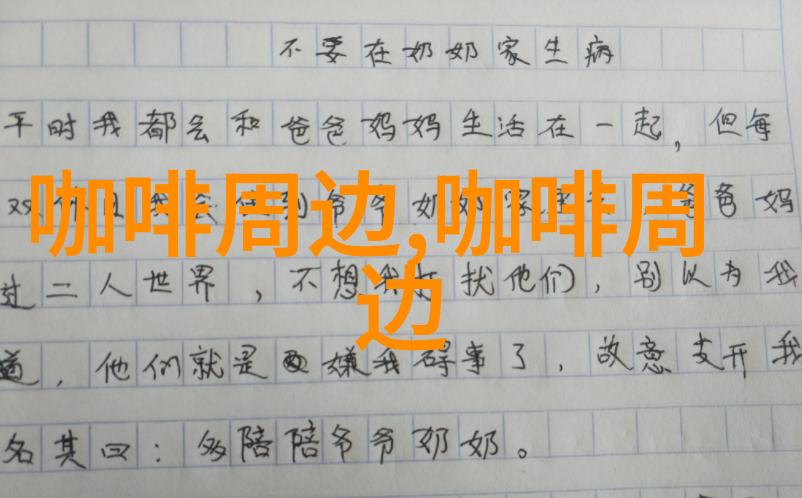 不要在奶奶家生病
平时我都会和爸爸妈妈生活在一起，但每
双休日我会到爷爷奶奶家爸爸妈
咖啡周边,咖啡周
边
过二人世界，不想我打扰他们，别以为我
道，他们就是嫌我碍事了，故意支开我
名其曰：多陪陪爷爷奶奶。